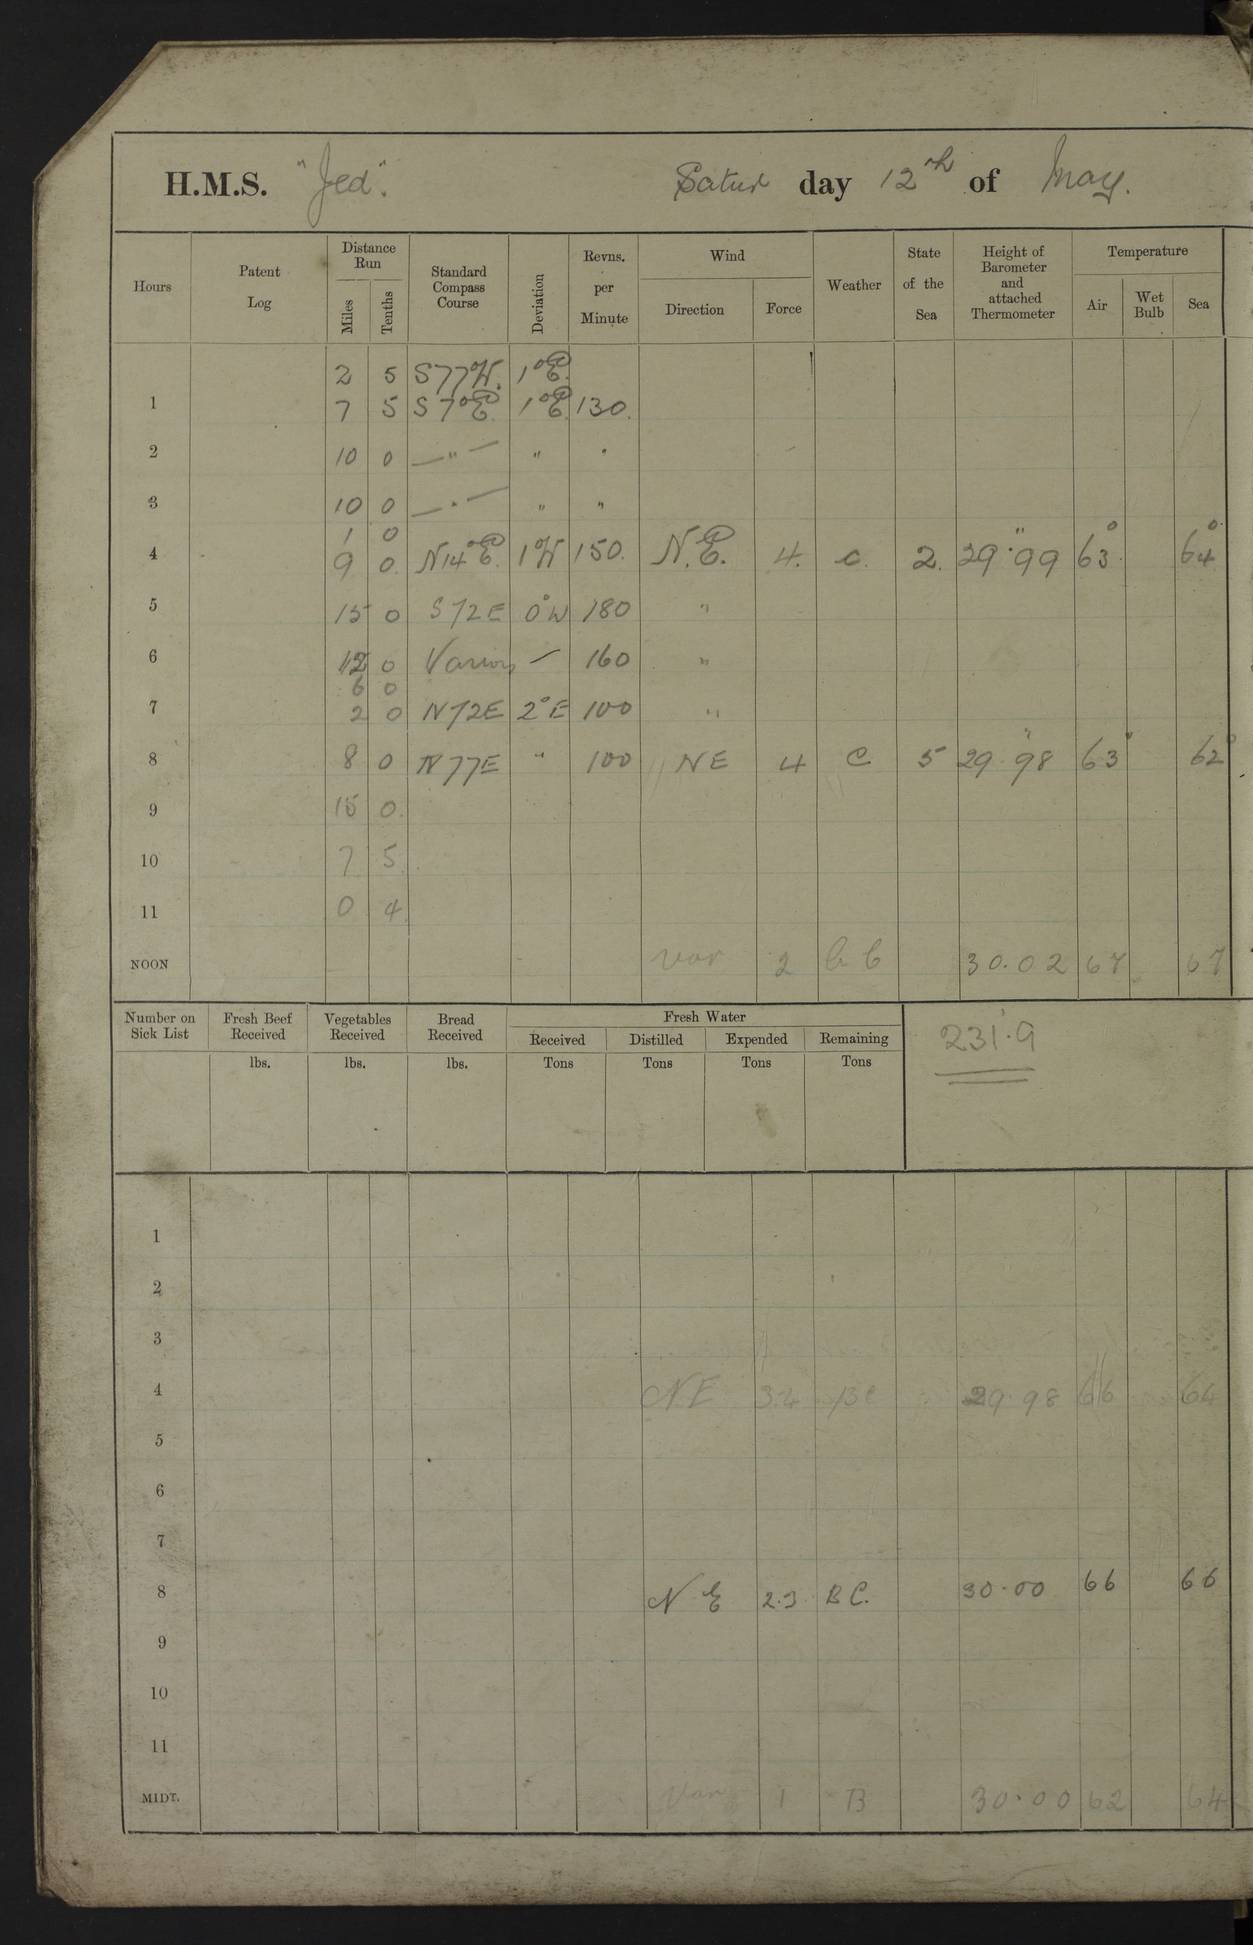 H.M.S. "Jed". Satur day 12th of May.
Hours Patent Log Distance Run Miles Tenths Standard Compass Course Deviation Revns. per Minute Wind Direction Force Weather State of the Sea Height of Barometer and attached Thermometer Temperature Air Wet Bulb Sea
2 5 S77°W. 1°E.
1 7 5 S7°E. 1°E. 130.
2 10 0 — " — " "
3 10 0 — " — " "
1 0
4 9 0. N14°E. 1°W 150. N.E. 4. c. 2. 29.99 63° 64°
5 15 0 S72E 0°W 180 "
6 12 0 Various — 160 "
6 0
7 2 0 N72E 2°E 100 "
8 8 0 N77E " 100 NE 4 C 5 29.98 63° 62°
9 15 0.
10 7 5
11 0 4
NOON Var 2 30.02 67 67
Number on Sick List Fresh Beef Received Vegetables Received Bread Received Fresh Water Received Distilled Expended Remaining
lbs. lbs. lbs. Tons Tons Tons Tons
231.9
1
2
3
4 NE 3.4 BC 29.98 66 64
5
6
7
8 N E 2.3 B C. 30.00 66 66
9
10
11
MIDT. Var 1 B 30.00 62 64